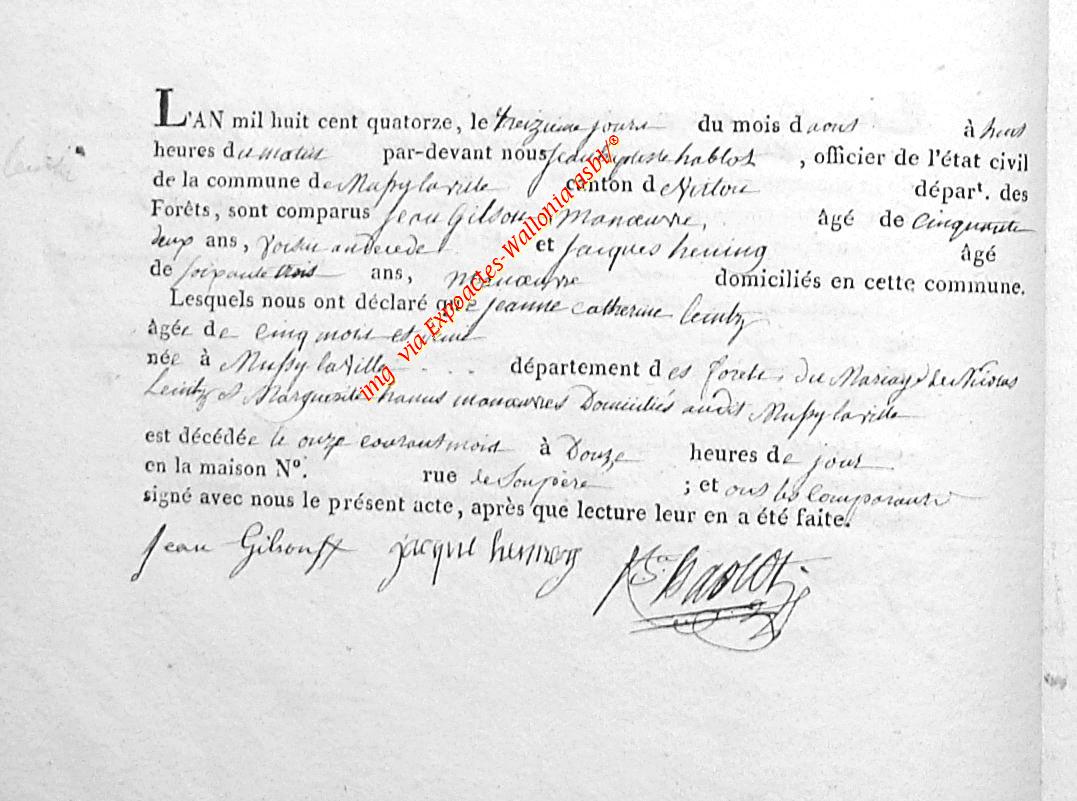 L'AN mil huit cent quatorze, le treizieme jours du mois d aout à huit
heures du matin par-devant nous jean hablot, officier de l'état civil
de la commune de Mussy la ville canton de Virton départ. des
Forêts, sont comparus jean Gilson Manœuvre, âgé de cinquante
deux ans, et jacques hening âgé
de soixante trois ans, manœuvre domiciliés en cette commune.
Lesquels nous ont déclaré que jeanne catherine leintz
âgée de cinq mois et
née à Mussy la Ville département des forets, du Mariage de Nicolas
Leintz et Marguerite hanus manœuvres Domiciliés audit Mussy la ville
est décédée le onze courant mois à Douze heures de jour
en la maison N°. rue de Soupère ; et ont les comparants
signé avec nous le présent acte, après que lecture leur en a été faite.
jean Gilsonff jacque hennog hablot
leintz
img via Expoactes-Wallonia asbl®